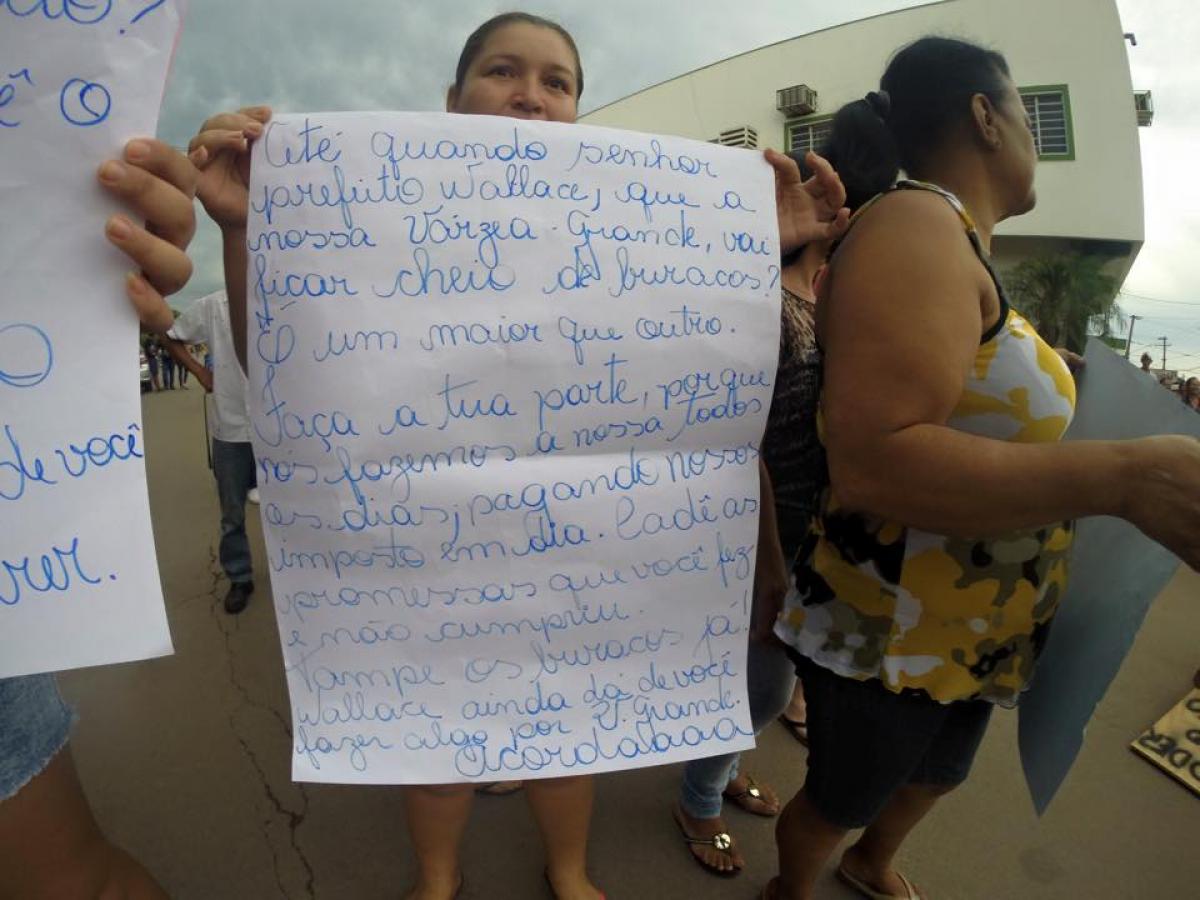 ão?
ê o
O
de você
rer.
Até quando senhor
prefeito Wallace, que a
nossa Várzea-Grande, vai
ficar cheio de buracos?
É um maior que outro.
Faça a tua parte, porque
nós fazemos a nossa todos
os dias, pagando nossos
imposto em dia. Cadê as
promessas que você fez
e não cumpriu.
Tampe os buracos já!
Wallace ainda dá de você
fazer algo por V. Grande.
Acordaaaa
ODER